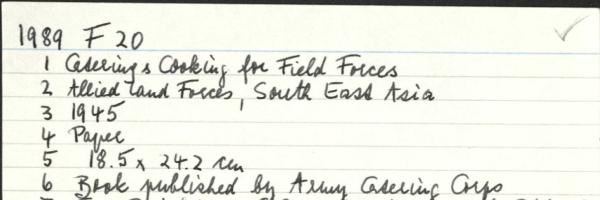 1989 F 20
1 Catering & Cooking for Field Forces
2 Allied Land Forces, South East Asia
3 1945
4 Paper
5 18.5 x 24.2 cm
6 Book published by Army Catering Corps